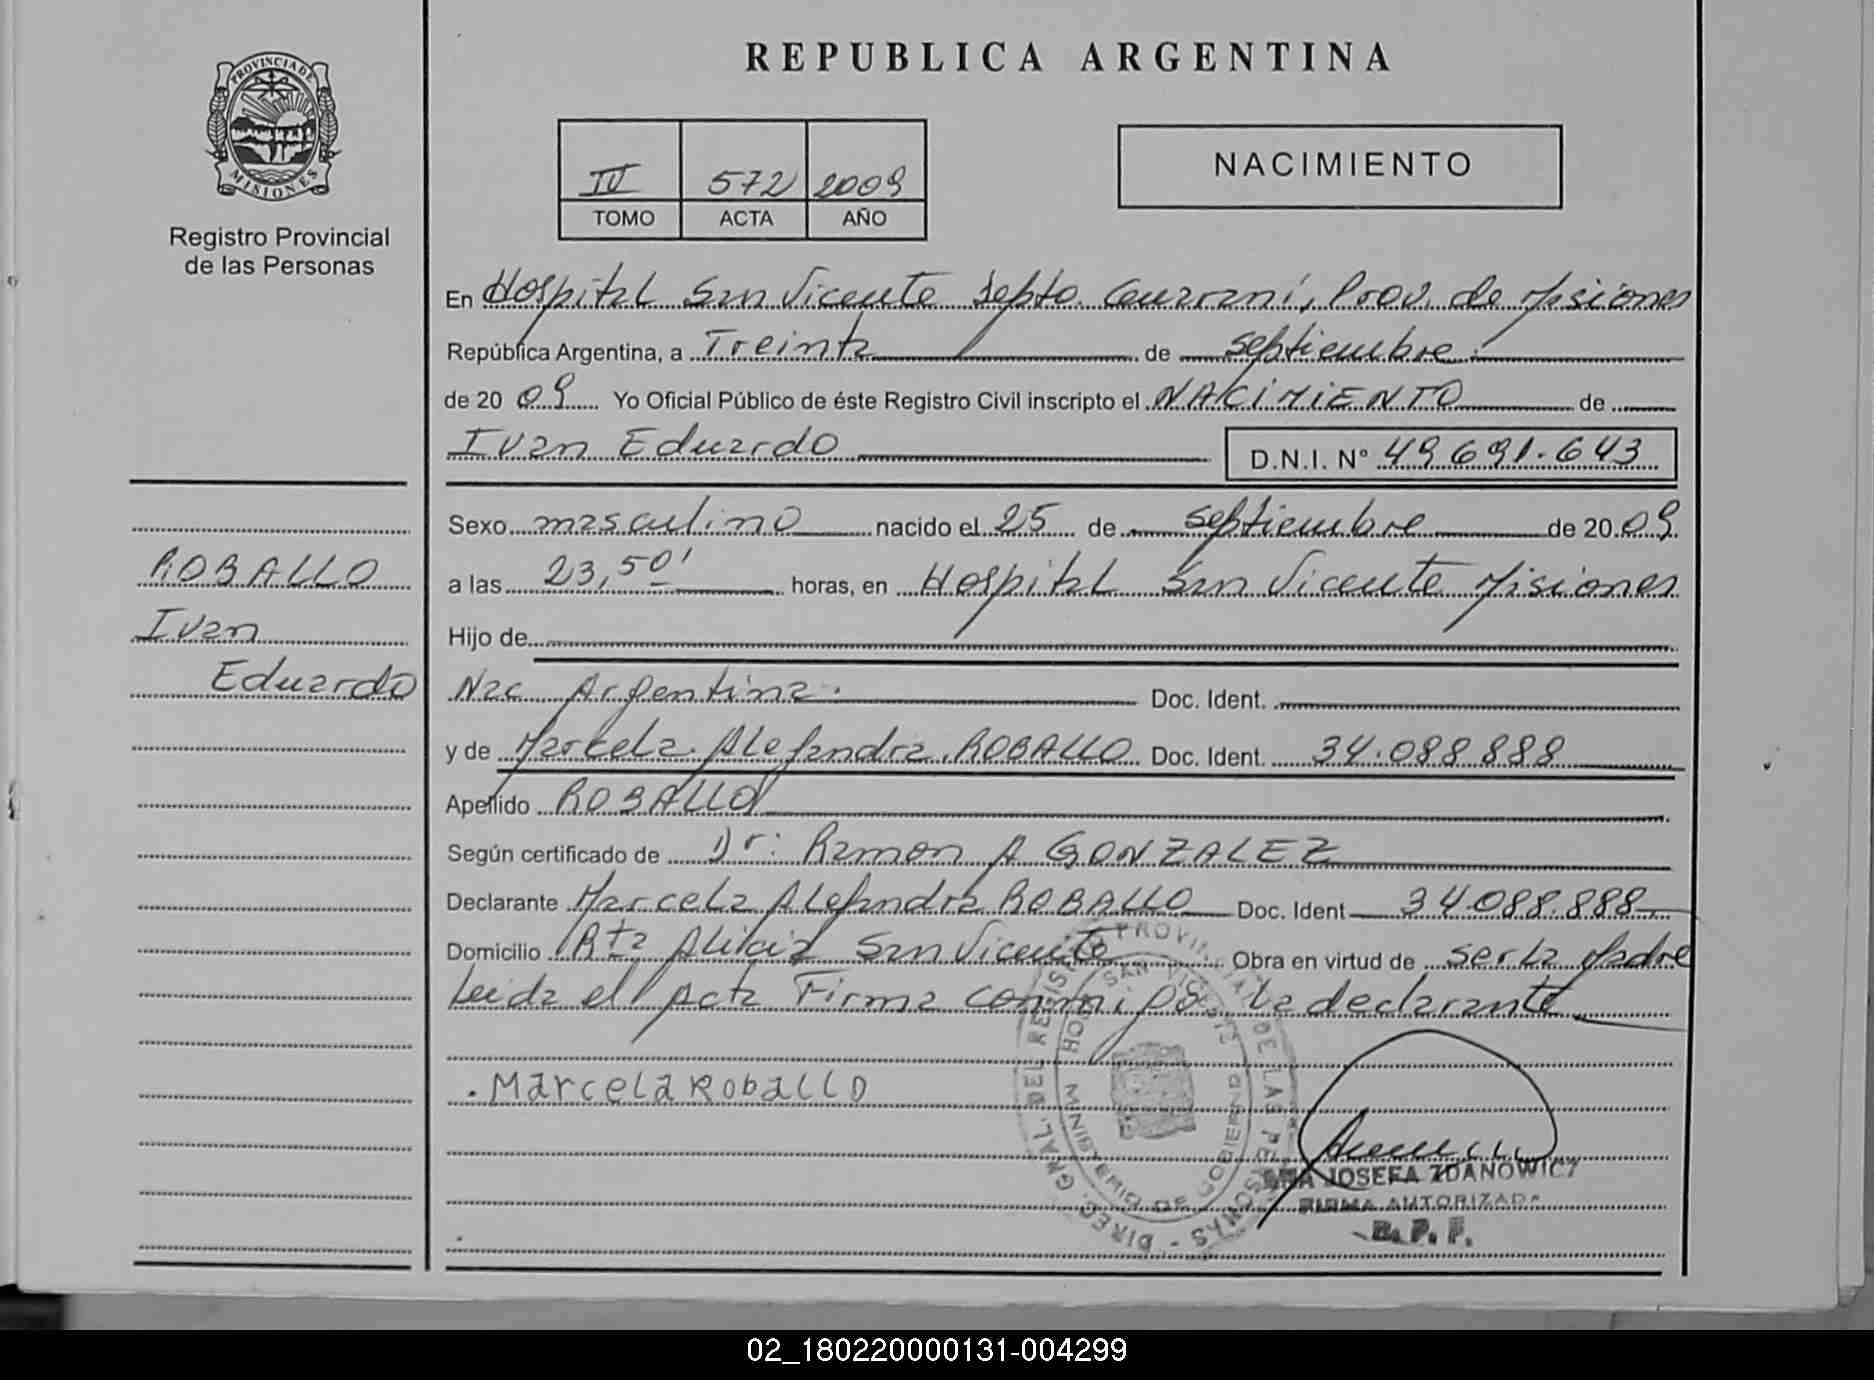 PROVINCIA DE
MISIONES
Registro Provincial
de las Personas
ROBALLO
Ivan
Eduardo
REPUBLICA ARGENTINA
IV 572 2009
TOMO ACTA AÑO
NACIMIENTO
En Hospital San Vicente Depto. Guarani, Prov. de Misiones
República Argentina, a Treinta de septiembre.
de 2009 Yo Oficial Público de éste Registro Civil inscripto el NACIMIENTO de
Ivan Eduardo D.N.I. N° 49.691.643
Sexo masculino nacido el 25 de septiembre de 2009
a las 23,50' horas, en Hospital San Vicente Misiones
Hijo de
Nac Argentina. Doc. Ident.
y de Marcela Alejandra ROBALLO Doc. Ident. 34.088888
Apellido ROBALLO
Según certificado de Dr: Ramon A GONZALEZ
Declarante Marcela Alejandra ROBALLO Doc. Ident 34088.888
Domicilio Rta Alicia San Vicente Obra en virtud de ser la Madre
Leida el Acta Firma conmigo la declarante
. Marcela Roballo
DIREC. GRAL. DEL REGISTRO PROVINCIAL DE LAS PERSONAS
HOSP. SAN VICENTE
MINISTERIO DE GOBIERNO
ANA JOSEFA ZDANOWICZ
FIRMA AUTORIZADA
R. P. P.
02_180220000131-004299